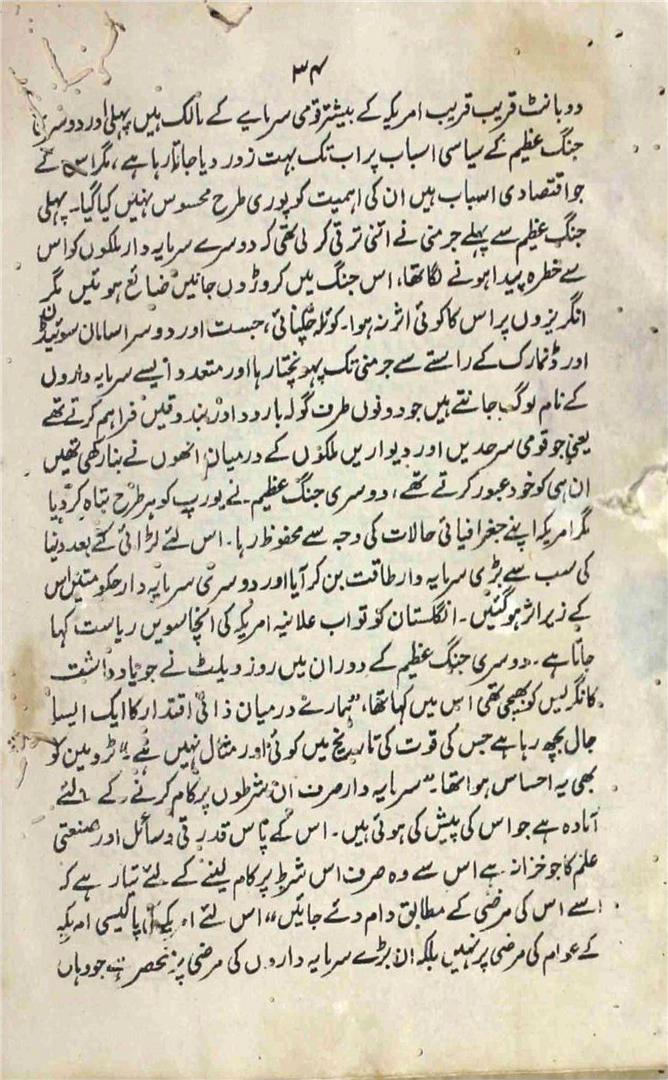 ۳۴
دوپانٹ قریب قریب امریکہ کے بیشتر قومی سرمایے کے مالک ہیں پہلی اور دوسری
جنگ عظیم کے سیاسی اسباب پر اب تک بہت زور دیا جاتا رہا ہے، مگر اس کے
جو اقتصادی اسباب ہیں ان کی اہمیت کو پوری طرح محسوس نہیں کیا گیا۔ پہلی
جنگ عظیم سے پہلے جرمنی نے اتنی ترقی کر لی تھی کہ دوسرے سرمایہ دار ملکوں کو اس
سے خطرہ پیدا ہونے لگا تھا، اس جنگ میں کروڑوں جانیں ضائع ہوئیں مگر
انگریزوں پر اس کا کوئی اثر نہ ہوا۔ کوئلہ چکنائی، جست اور دوسرا سامان سوئیڈن
اور ڈنمارک کے راستے سے جرمنی تک پہونچتا رہا اور متعدد ایسے سرمایہ داروں
کے نام لوگ جانتے ہیں جو دونوں طرف گولہ بارود اور بندوقیں فراہم کرتے تھے
یعنی جو قومی سرحدیں اور دیواریں ملکوں کے درمیان انھوں نے بنا رکھی تھیں
ان ہی کو خود عبور کرتے تھے، دوسری جنگ عظیم نے یورپ کو ہر طرح تباہ کر دیا
مگر امریکہ اپنے جغرافیائی حالات کی وجہ سے محفوظ رہا۔ اس لئے لڑائی کے بعد دنیا
کی سب سے بڑی سرمایہ دار طاقت بن کر آیا اور دوسری سرمایہ دار حکومتیں اس
کے زیر اثر ہو گئیں۔ انگلستان کو تو اب علانیہ امریکہ کی انچاسویں ریاست کہا
جاتا ہے۔ دوسری جنگ عظیم کے دوران میں روزویلٹ نے جو یادداشت
کانگریس کو بھیجی تھی اس میں کہا تھا، "ہمارے درمیان ذاتی اقتدار کا ایک ایسا
جال بچھ رہا ہے جس کی قوت کی تاریخ میں کوئی اور مثال نہیں ہے۔" ٹرومین کو
بھی یہ احساس ہوا تھا۔ "سرمایہ دار صرف ان شرطوں پر کام کرنے کے لئے
آمادہ ہے جو اس کی پیش کی ہوئی ہیں۔ اس کے پاس قدرتی وسائل اور صنعتی
علم کا جو خزانہ ہے اس سے وہ صرف اس شرط پر کام لینے کے لئے تیار ہے کہ
اسے اس کی مرضی کے مطابق دام دئے جائیں" اس لئے امریکہ پالیسی امریکہ
کے عوام کی مرضی پر نہیں بلکہ ان بڑے سرمایہ داروں کی مرضی پر منحصر ہے جو وہاں